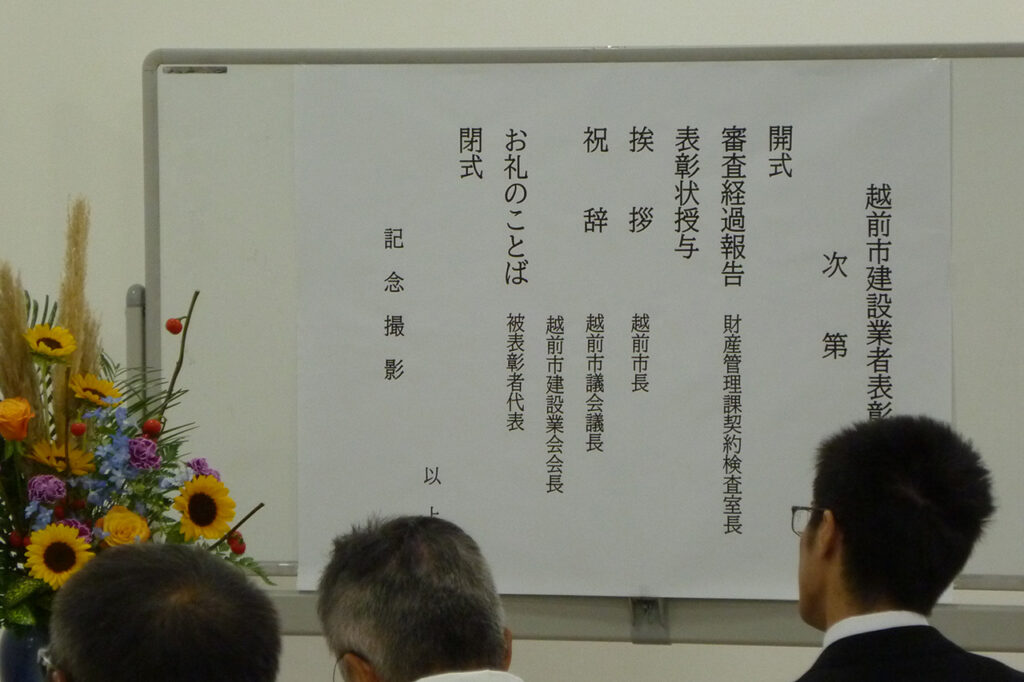 越前市建設業者表彰
次第
開式
審査経過報告 財産管理課契約検査室長
表彰状授与
挨拶 越前市長
祝辞 越前市議会議長
越前市建設業会会長
お礼のことば 被表彰者代表
閉式
以上
記念撮影